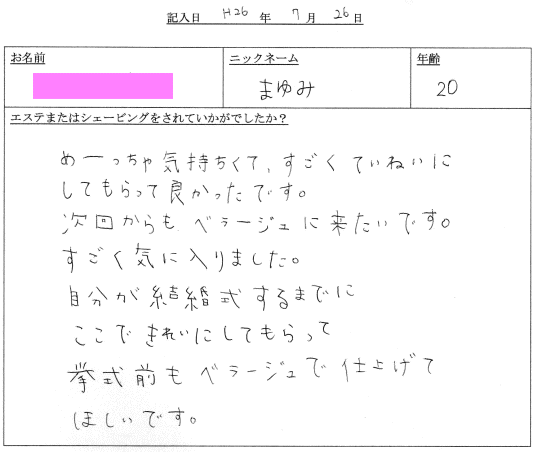 記入日 H26 年 7 月 26 日
お名前 ニックネーム 年齢
まゆみ 20
エステまたはシェービングをされていかがでしたか？
めーっちゃ気持ちくて、すごくていねいに
してもらって良かったです。
次回からも ベラージュに来たいです。
すごく気に入りました。
自分が結婚式するまでに
ここできれいにしてもらって
挙式前もベラージュで仕上げて
ほしいです。